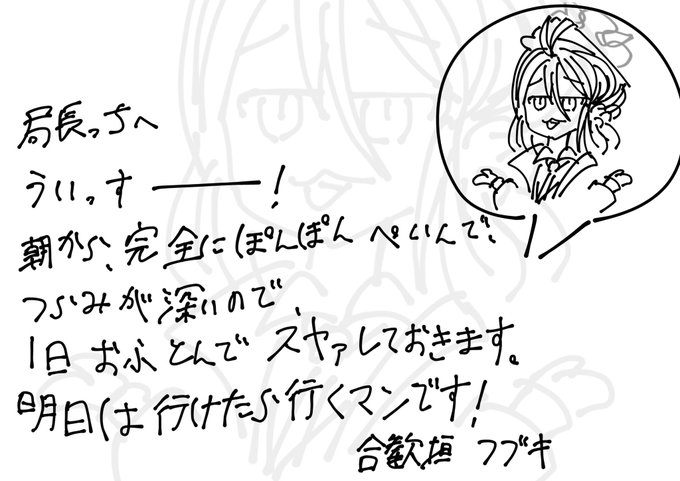 局長っちへ
ういっすー!
朝から、完全にぽんぽんぺいんで、
つらみが深いので、
1日おふとんでスヤァしておきます。
明日は行けたら行くマンです!
合歓垣 フブキ